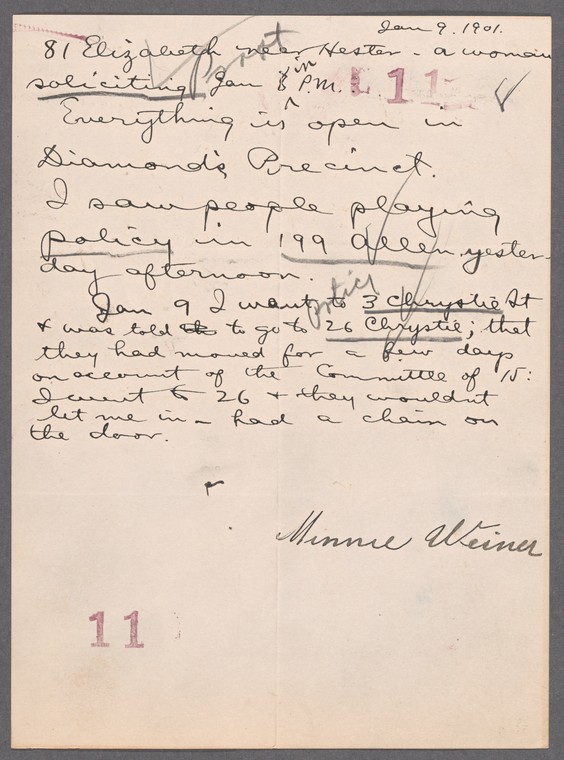 Jan 9. 1901.
81 Elizabeth near Hester - a woman
soliciting Jan 8 in P.M.
11
Everything is open in
Diamond's Precinct.
I saw people playing
policy in 199 Allen yester-
day afternoon.
Jan 9 I went to 3 Chrystie St
& was told to go to 26 Chrystie; that
they had moved for a few days
on account of the Committee of 15:
I went to 26 & they wouldn't
let me in - had a chain on
the door.
Minnie Weiner
11